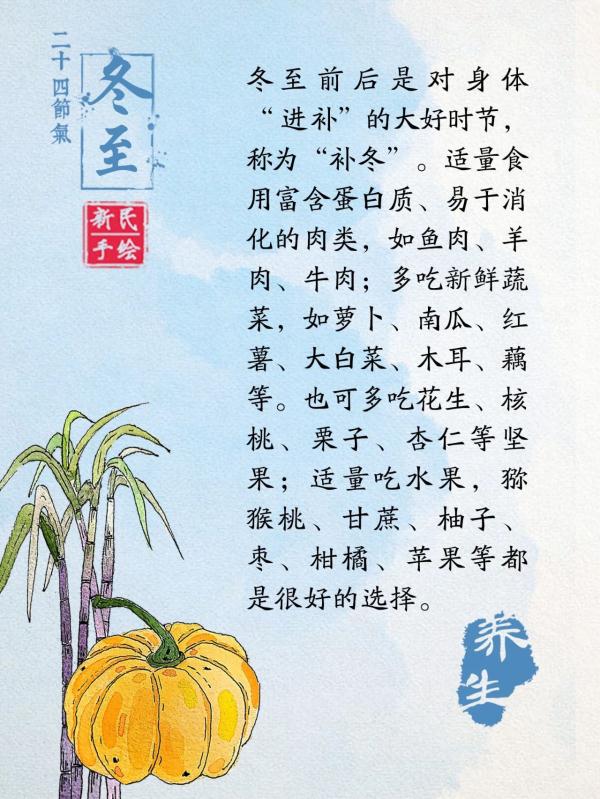 二十四節氣
冬至
新民
手绘
冬至前后是对身体
“进补”的大好时节，
称为“补冬”。适量食
用富含蛋白质、易于消
化的肉类，如鱼肉、羊
肉、牛肉；多吃新鲜蔬
菜，如萝卜、南瓜、红
薯、大白菜、木耳、藕
等。也可多吃花生、核
桃、栗子、杏仁等坚
果；适量吃水果，猕
猴桃、甘蔗、柚子、
枣、柑橘、苹果等都
是很好的选择。
养生